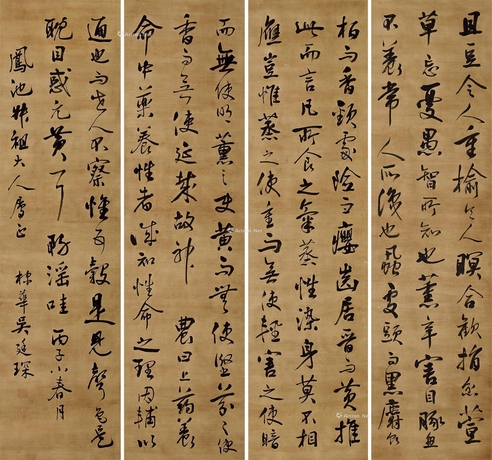 且豆令人重榆令人瞑合歡捐忿萱
草忘憂愚智所知也薰辛害目豚魚
不養常人所識也虱處頭而黑麝食
柏而香頸處險而癭齒居晉而黃推
此而言凡所食之氣蒸性染身莫不相
應豈惟蒸之使重而無使輕害之使暗
而無使明薰之使黃而無使堅芬之使
香而無使延哉故神農曰上藥養
命中藥養性者誠知性命之理因輔以
通也而世人不察惟五穀是見聲色是
耽目惑元黃耳務淫哇 丙子小春月
鳳池叔祖大人屬正 棣華吳廷琛